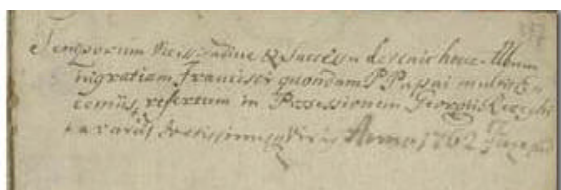 Temporum Vicissitudine & Successu devenit hocce Album
migratiam Francisci quondam P. Papai multis En
comiis, refertum in Possessionem Georgii
a variis Doctissimisq Viris Anno 1762